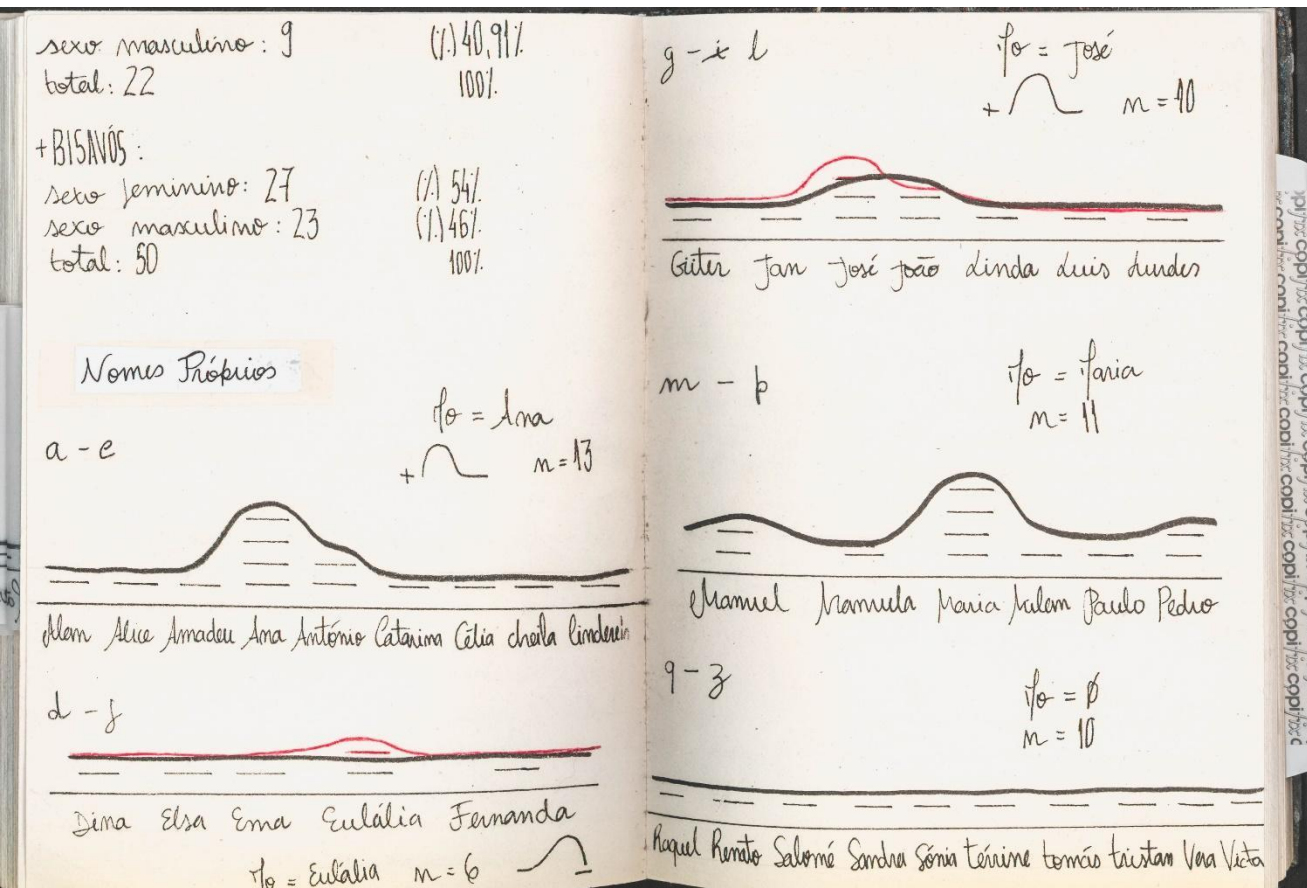 sexo masculino: 9 (%) 40,91%
total: 22 100%
+ BISAVÓS:
sexo feminino: 27 (%) 54%
sexo masculino: 23 (%) 46%
total: 50 100%
Nomes Próprios
a - c
Mo = Ana
+ n = 13
Alice Amadeu Ana António Catarina Célia cheila
d - f
Dina Elsa Ema Eulália Fernanda
Mo = Eulália n = 6
g - l
Mo = José
+ n = 10
Jan José João Linda Luis Lurdes
m - p
Mo = Maria
n = 11
Manuel Manuela Maria Paulo Pedro
q - z
Mo = Ø
n = 10
Raquel Renato Salomé Sandra Sónia térrine tomás tristan Vera
copi